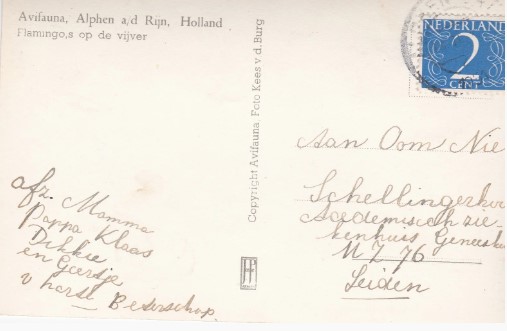 Avifauna, Alphen a/d Rijn, Holland
Flamingo,s op de vijver
Copyright Avifauna. Foto Kees v.d. Burg
NEDERLAND
2
CENT
Aan Oom Nie
Schellingerhou
Academisch zie-
kenhuis Geneesk
M Z 76
Leiden
afz. Mamma
Pappa Klaas
Dikkie
en Geertje
v harte Beterschap.